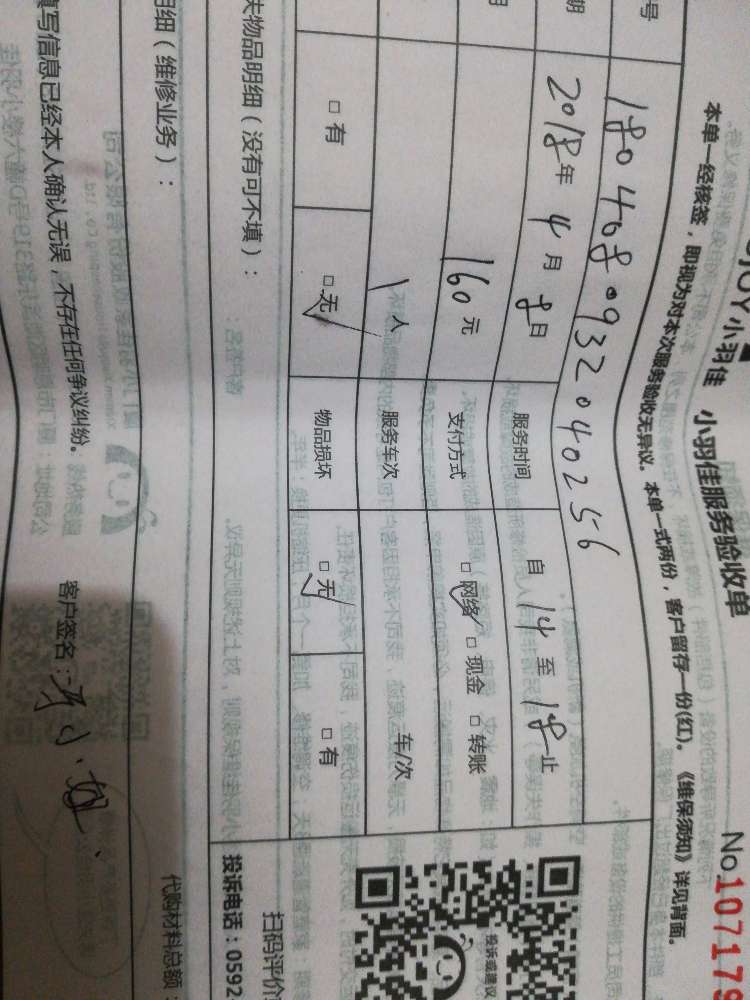 JOY 小羽佳 小羽佳服务验收单 No 107179
本单一经核签，即视为对本次服务验收无异议。本单一式两份，客户留存一份(红)。《维保须知》详见背面。
号 1804080932040256
期 2018年4月8日 服务时间 自 14 至 18 止
160元 支付方式 □网络 □现金 □转账
1人 服务车次 车/次
□有 □无 物品损坏 □无 □有
失物品明细（没有可不填）：
明细（维修业务）：
填写信息已经本人确认无误，不存在任何争议纠纷。 客户签名：
投诉或建议
扫码评价
投诉电话：0592
代购材料总额：